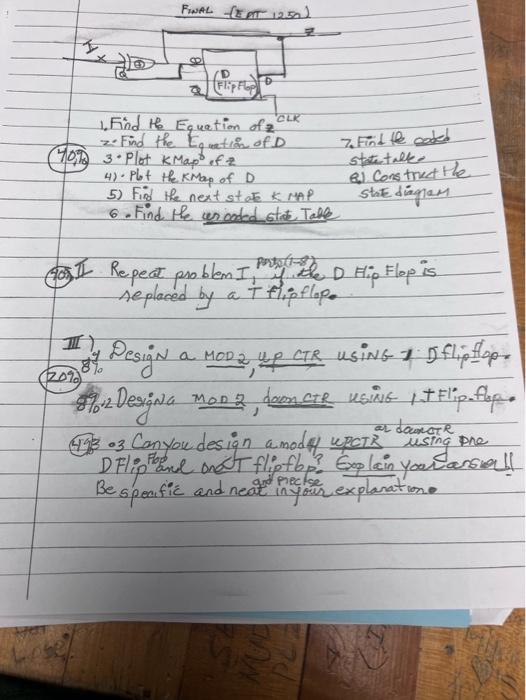 FINAL (EPT 1250)
I
X
Z
D
(Flip Flop)
D
CLK
1. Find the Equation of z
2. Find the Equation of D
40%
3. Plot K Map of z
4). Plot the K Map of D
5) Find the next state K MAP
6. Find the uncoded state Table
7. Find the coded
state table
8) Construct the
state diagram
40% II Repeat problem I, parts (1-8) if the D Flip Flop is
replaced by a T flipflop.
III)
20%
8% .1 Design a MOD 2, UP CTR USING 1 D flipflop.
8% .2 Design a MOD 2, down CTR USING 1 T Flip-flop.
4% .3 Can you design a mod 4 UPCTR or down CTR using one
D Flip Flop and one T flipflop? Explain your answer!!
Be specific and neat and precise in your explanation.